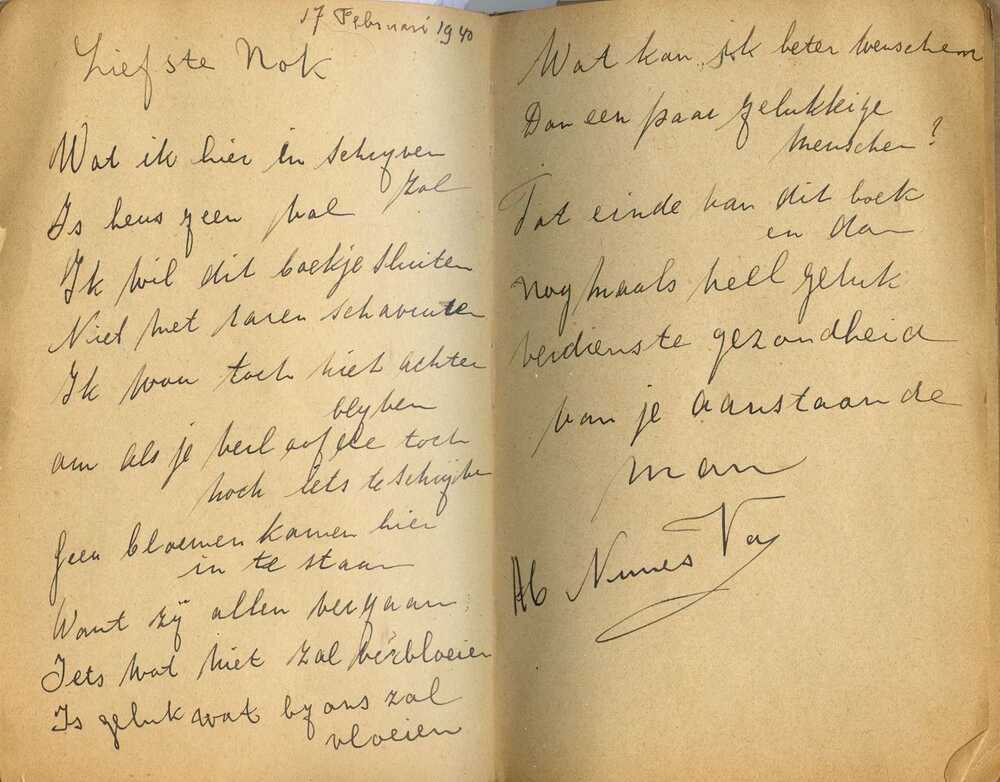 17 Februari 1940
Liefste Nok
Wat ik hier in schrijven
zal
Is heus geen bal
Ik wil dit boekje sluiten
Niet met raren schavuiten
Ik wou toch niet achter
blijven
om als je verloofde toch
noch iets te schrijven
Geen bloemen komen hier
in te staan
Want zij allen vergaan
Iets wat niet zal verbloeien
Is geluk wat by ons zal
vloeien
Wat kan ik beter wenschen
Dan een paar gelukkige
menschen?
Tot einde van dit boek
en dan
nogmaals heel geluk
verdienste gezondheid
van je aanstaande
man
Ab Nunes Vas